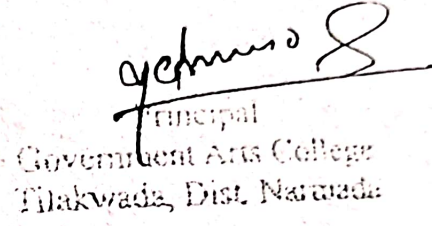 Principal
Government Arts College
Tilakwada, Dist. Narmada